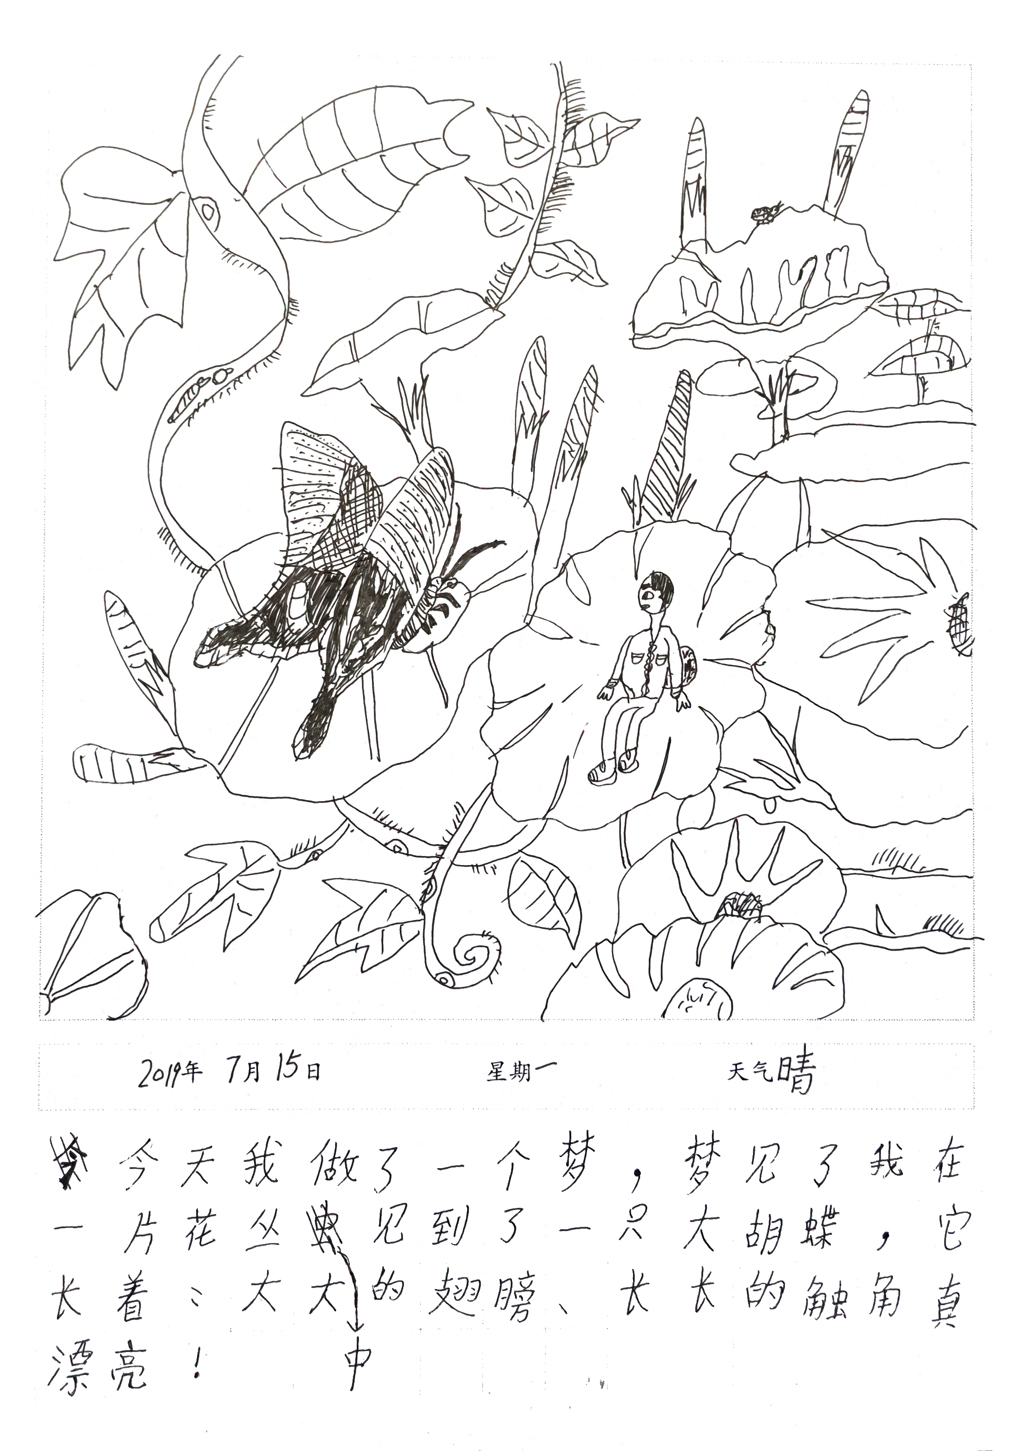 2019年 7月15日 星期一 天气晴
今天我做了一个梦，梦见了我在
一片花丛中见到了一只大胡蝶，它
长着：大大的翅膀、长长的触角真
漂亮！